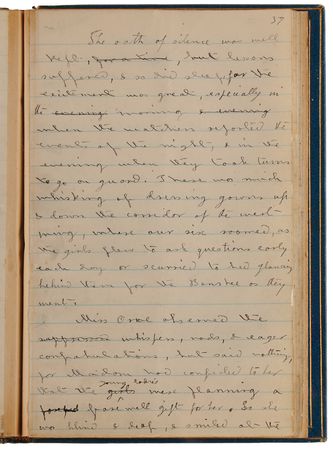 37
The oath of silence was well
kept, for a time, but lessons
suffered, & so did sleep, for the
excitement was great, especially in
the evening morning & evening
when the watchers reported the
events of the night, & in the
evening when they took turns
to go on guard. There was much
whisking of dressing gowns up
& down the corridor of the west
wing, where our six roomed, as
the girls flew to ask questions early
each day or scurried to bed glancing
behind them for the Banshee as they
went.
Miss Orne observed the
suppression whispers, nods, & eager
confabulations, but said nothing,
for Madam had confided to her
young ladies
that the girls were planning a
farewell gift for her. So she
was blind & deaf, & smiled at the